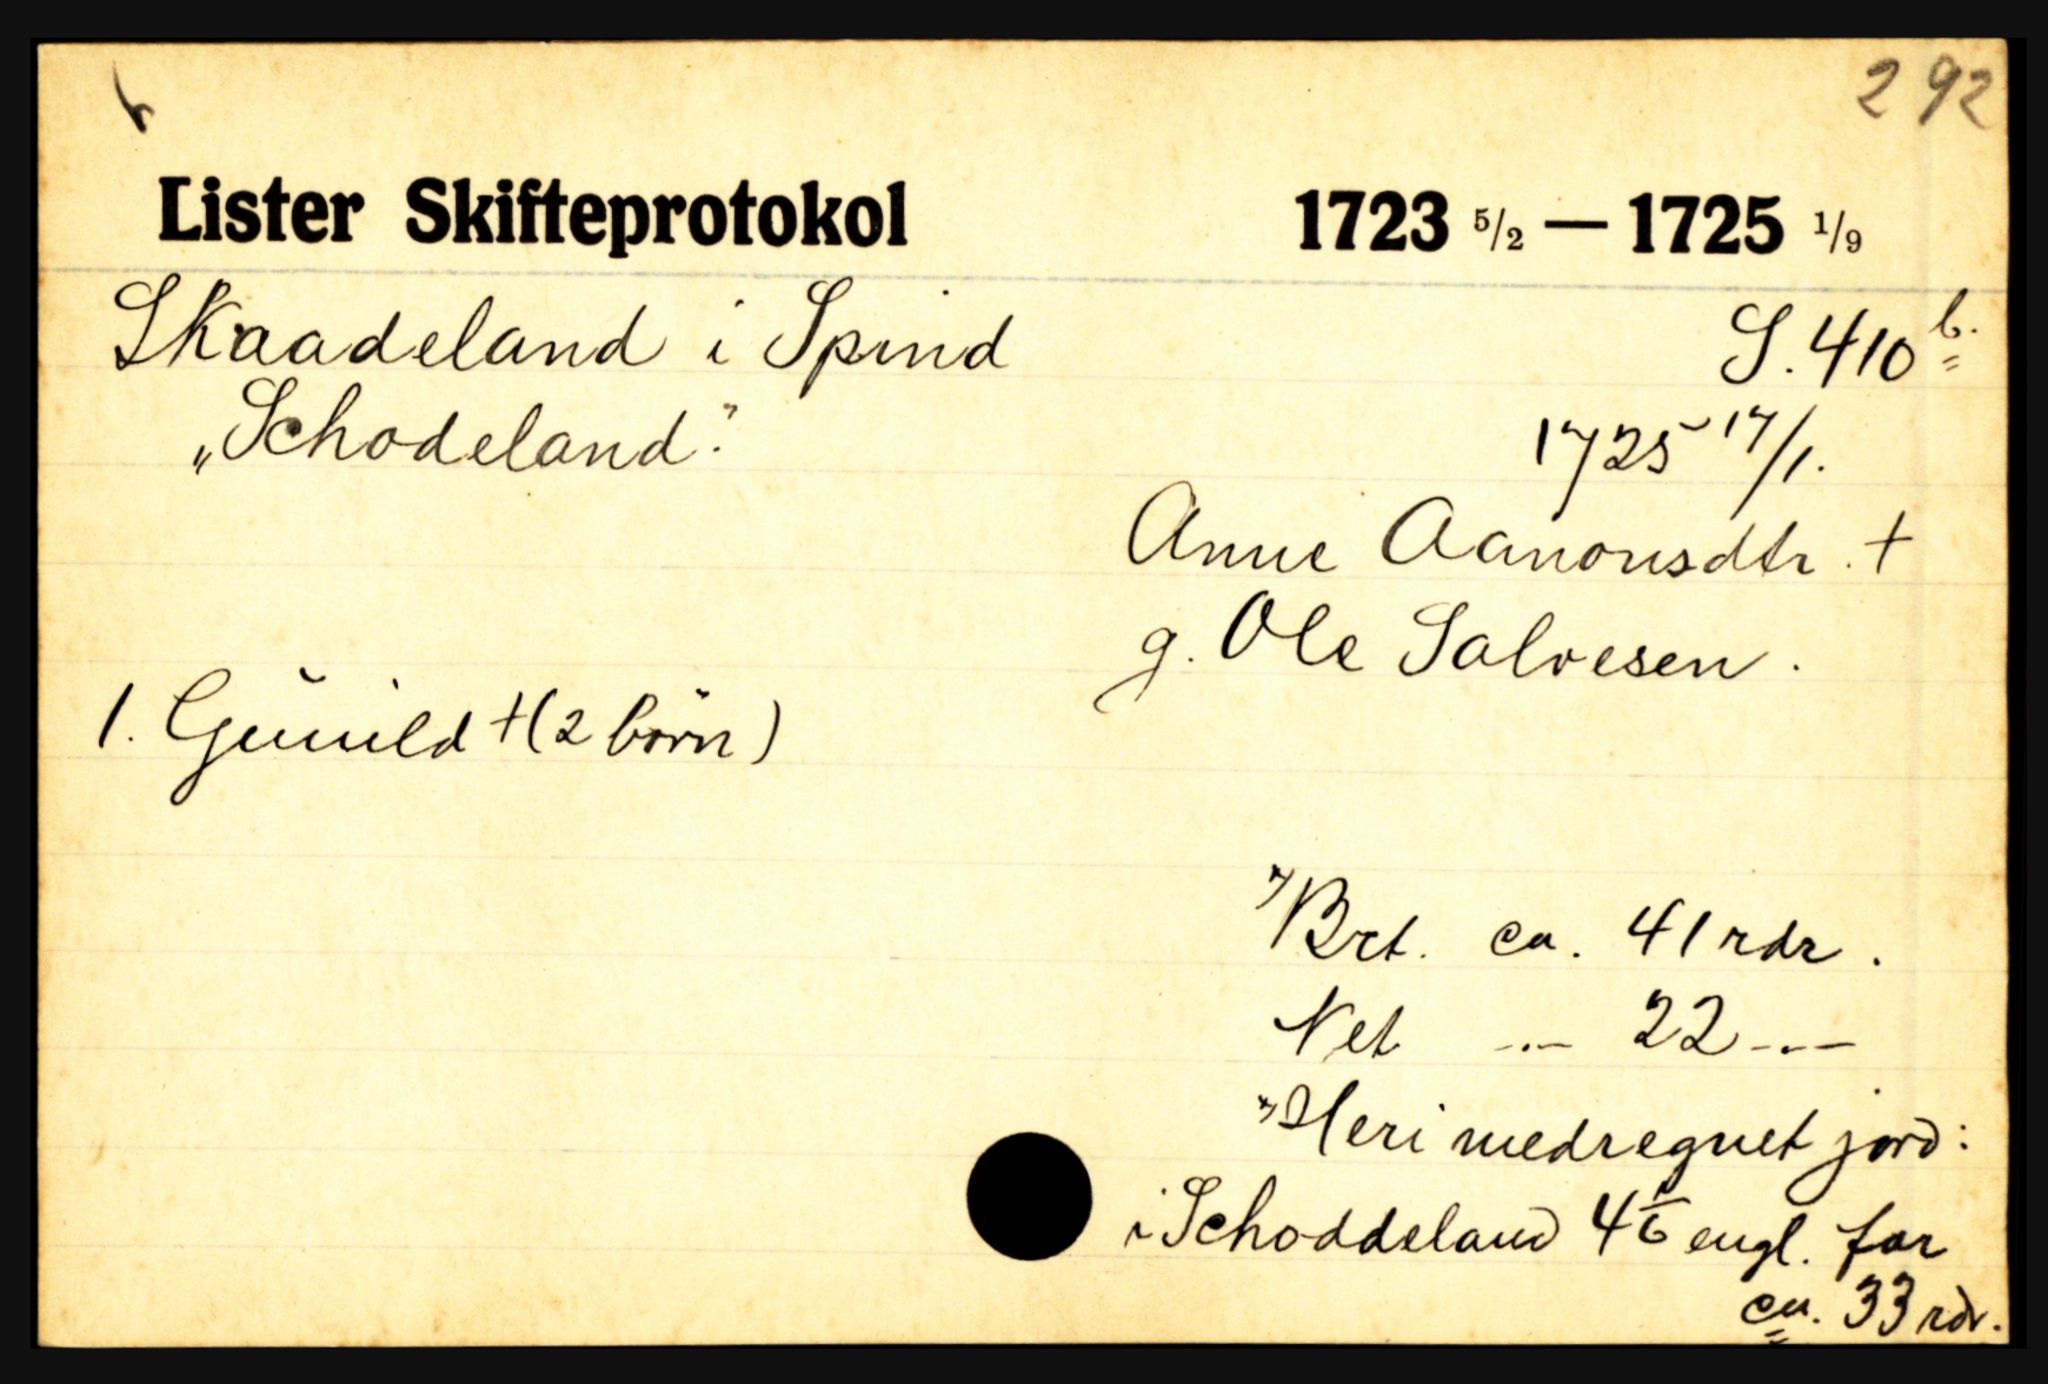 292
Lister Skifteprotokol 1723 5/2 — 1725 1/9
Skaadeland i Spind S. 410 b.
„Schodeland." 1725 17/1.
Anne Aanonsdtr. +
g. Ole Salvesen.
1. Gunild + (2 børn)
*) Brt. ca. 41 rdr.
Net -.- 22 -.-
*) Heri medregnet jord:
i Schoddeland 4 1/6 engl. for
ca. 33 rdr.